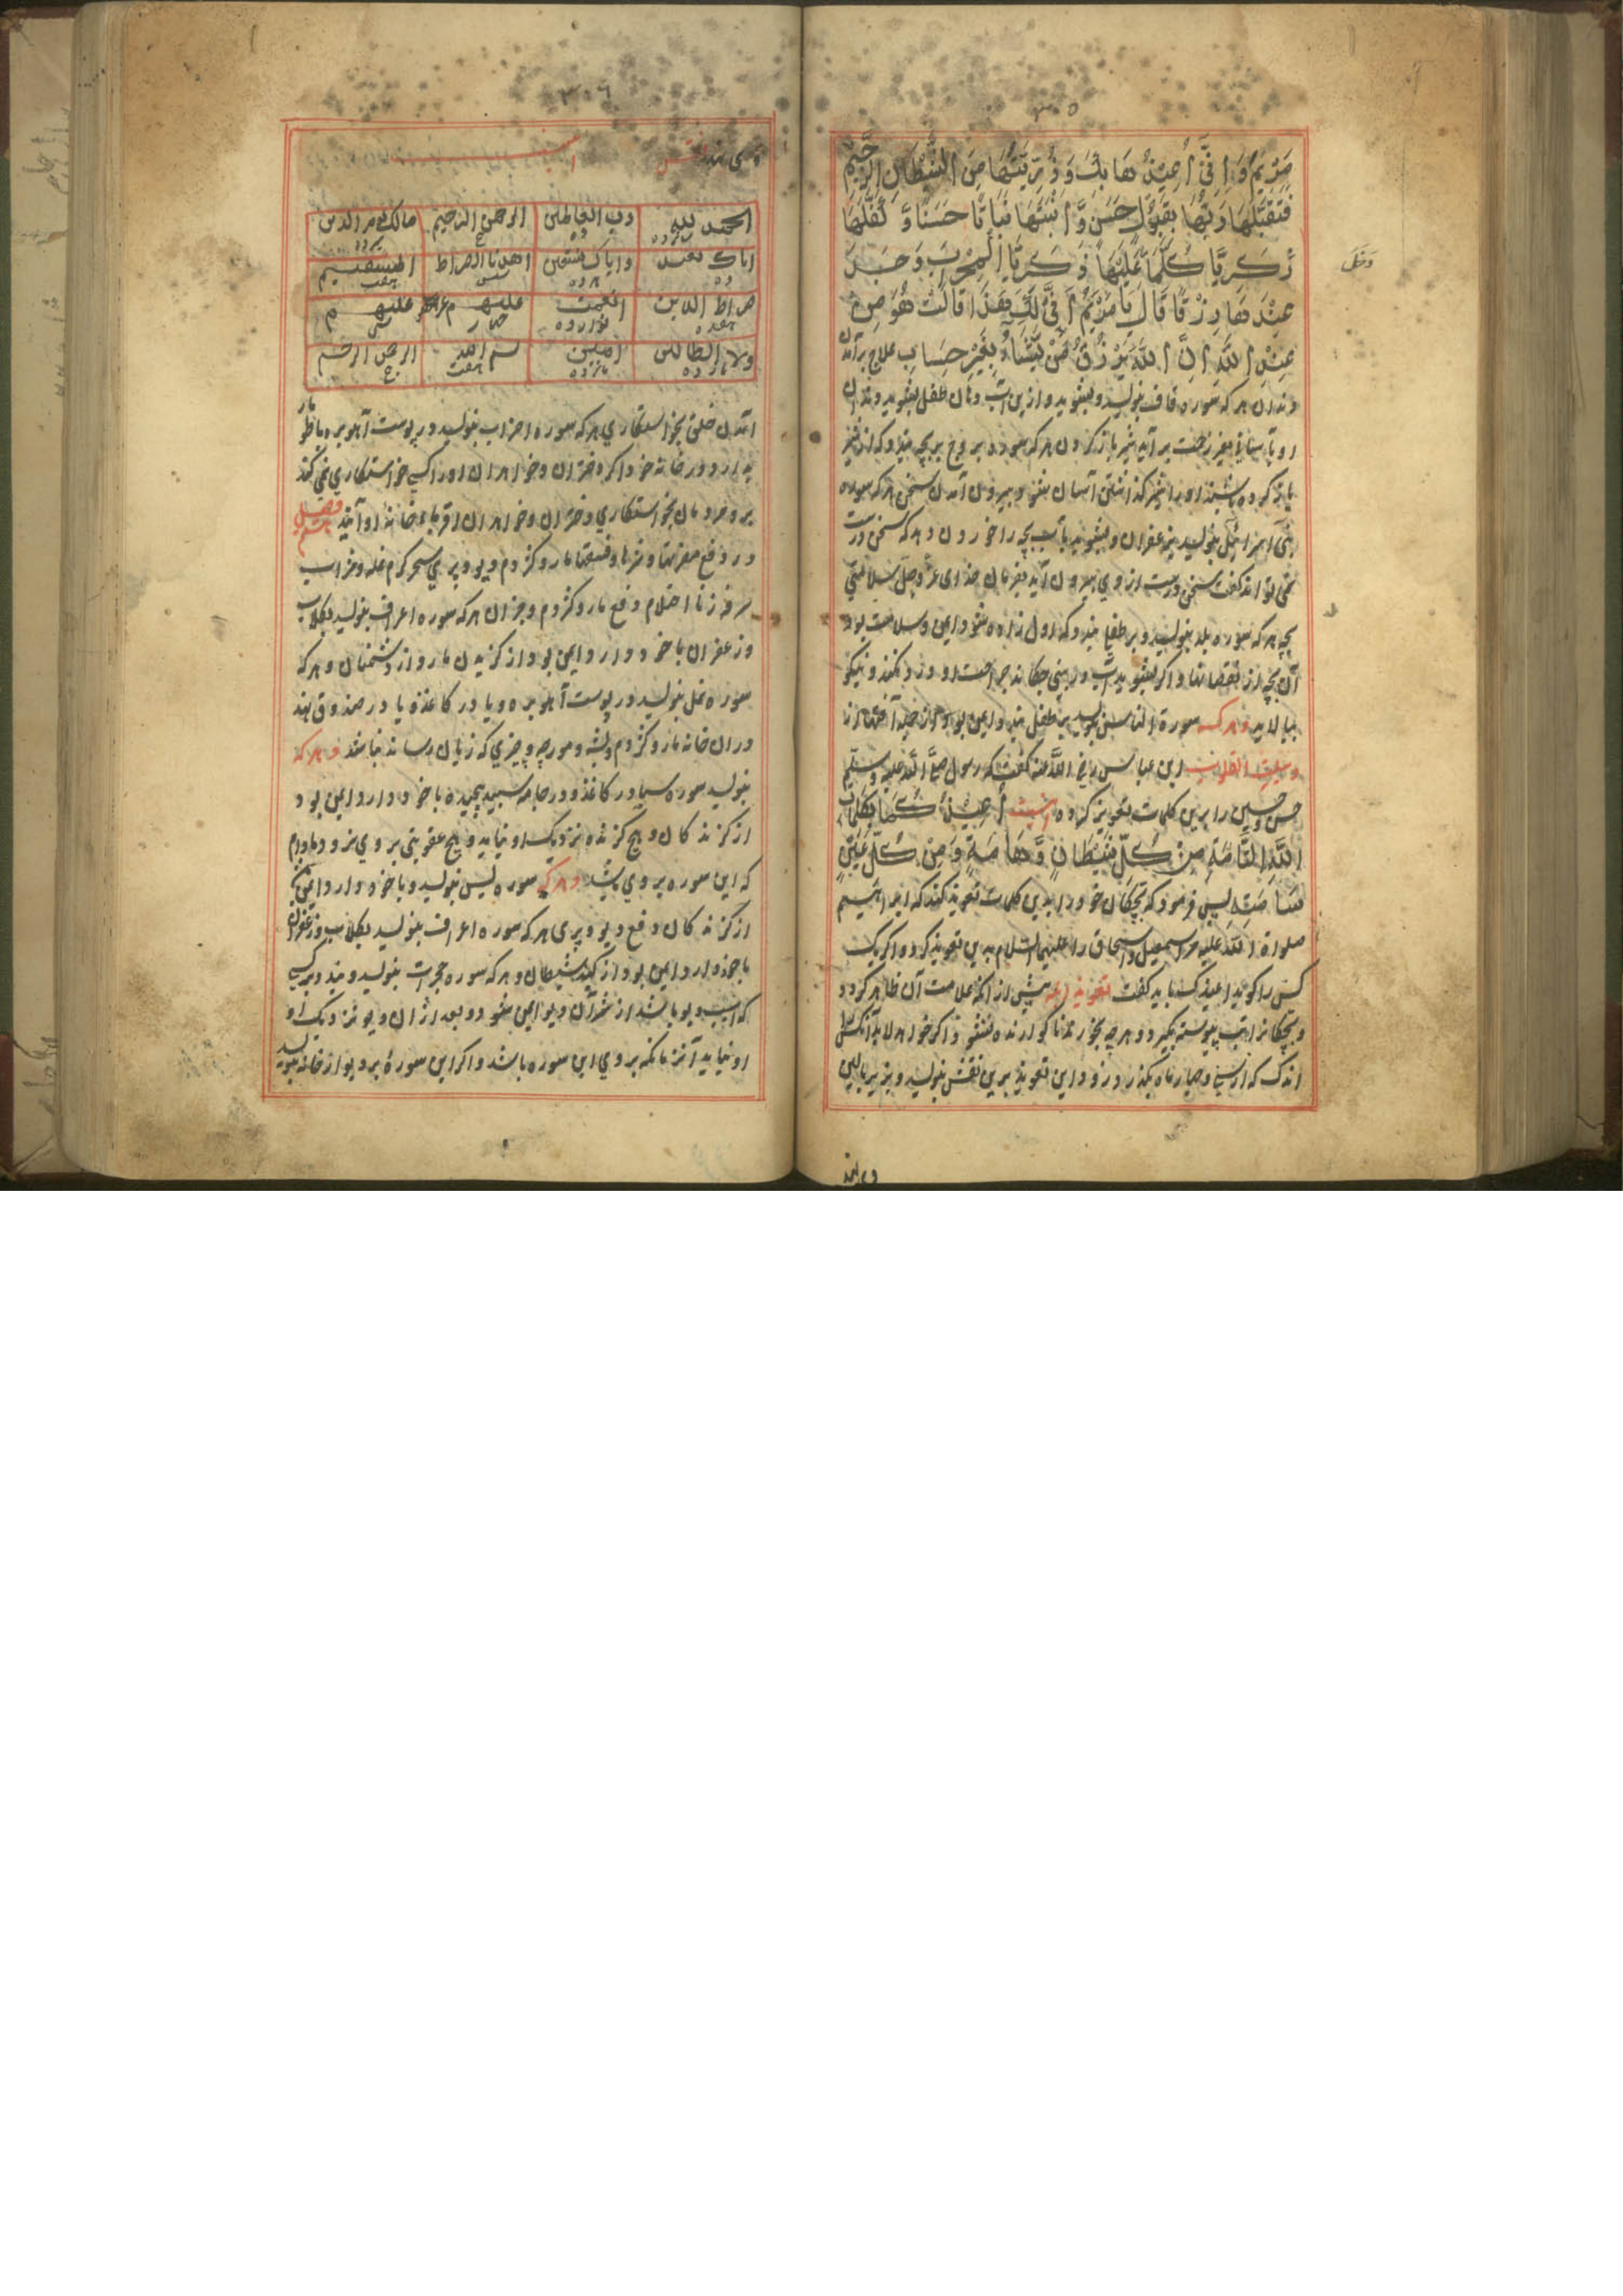 ۳۰۵
مَرْيَمَ وَ اِنِّی اُعِیْذُهَا بِكَ وَ ذُرِّیَّتَهَا مِنَ الشَّیْطَانِ الرَّجِیْمِ
فَتَقَبَّلَهَا رَبُّهَا بِقَبُوْلٍ حَسَنٍ وَّ اَنْبَتَهَا نَبَاتًا حَسَنًا وَّ كَفَّلَهَا
زَكَرِیَّا كُلَّمَا عَلَیْهَا زَكَرِیَّا الْمِحْرَابَ وَجَدَ
دَخَلَ
عِنْدَهَا رِزْقًا قَالَ یَا مَرْیَمُ اَنّٰی لَكِ هٰذَا قَالَتْ هُوَ مِنْ
عِنْدِ اللّٰهِ اِنَّ اللّٰهَ یَرْزُقُ مَنْ یَّشَاءُ بِغَیْرِ حِسَابٍ علاج برآمدن
دندان هر که سوره قاف بنویسد و بشوید و ازین آب دهان طفل بشوید دندان
او بآسانی بغیر زحمت برآید شیر باز کردن هر که سوره بروج بر بچه بندد که از شیر
باز کرده باشند او را شیر گذاشتن آسان شود بیرون آمدن سخن هر که سوره
بنی اسرائیل بنویسد بزعفران و بشوید بآب بچه را خورون و هر که سخن درست
نمی تواند گفت سخن درست از وی بیرون آید بفرمان خدای عز و جل سلامتی
بچه هر که سوره بلد بنویسد و بر طفل بندد که اول زاده شود ایمن و سلامت بود
آن بچه از نقصانها و اگر بشوید آب در بینی چکاند
بیالاید و هر که سورة الناس بنویسد بر طفل بندد ایمن بود از جمله آفتها از
ابن عباس رضی الله عنه گفت که رسول صلی الله علیه و سلم
حسن و حسین را برین کلمات تعویذ کرده اینست اُعِیْذُ كُمَا بِكَلِمَاتِ
اللّٰهِ التَّامَّةِ مِنْ كُلِّ شَیْطَانٍ وَّ هَامَّةٍ وَ مِنْ كُلِّ عَیْنٍ
پس فرمود که بچگان خود را بدین کلمات تعویذ کنند که ابراهیم
صلواة الله علیه مر اسمعیل و اسحاق را علیهما السلام بدین تعویذ کرد و اگر یک
کس را گوید اعیذک باید گفت پیش از آنکه علامت آن ظاهر گردد
و بچگانرا تب پیوسته بگیرد و هر چه بخورند ناگوارنده
اندک که از سی و چهار ماه بگذرد زود این تعویذ برین نقش بنویسد و بزیر بالین
وی نهند
۳۰۶
وی نهند نقش اینست
الحمد لله | رب العالمین | الرحمن الرحیم | مالک یوم الدین
ایاک نعبد | وایاک نستعین | اهدنا الصراط | المستقیم
صراط الذین | انعمت | علیهم غیر | علیهم
ولا الضالین | آمین | بسم الله | الرحمن الرحیم
آمدن خلق بخواستگاری هر که سوره احزاب بنویسد در پوست آهو بره یا طومار
بدارد در خانه خود اگر دختران و خواهران او را کسی خواستگاری نمی کند
مردمان بخواستگاری دختران و خواهران اقرباء خانه او آیند فصل
در دفع مضرتها و شرها و فتنها مار و کژدم و دیو و پری سحر کرم غله و خراب
سرفه زنا احتلام دفع مار و کژدم و جز آن هر که سوره اعراف بنویسد بگلاب
و زعفران با خود دارد ایمن بود از گزیدن مار و از دشمنان و هر که
سوره نمل بنویسد در پوست آهو بره و یا در کاغذ و یا در صندوق نهد
در آن خانه مار و کژدم و پشه و مورچه و چیزی که زیان رساند نباشد و هر که
بنویسد سوره سبا در کاغذ و در جامه سپید پیچیده با خود دارد ایمن بود
از گزندگان و هیچ گزنده نزدیک او نیاید و هیچ عقوبتی بروی نرود مادام
که این سوره بروی باشد و هر که سوره یس بنویسد و با خود دارد ایمن
از گزندگان دفع دیو و پری هر که سوره اعراف بنویسد بگلاب و زعفران
با خود دارد ایمن بود از کید شیطان و هر که سوره حجرات بنویسد و بندد بر کسی
که آسیب دیو باشد از شر آن دیو ایمن شود و بعد از آن دیو نزدیک او
او نیاید آن زمانکه بروی این سوره باشد و اگر این سوره بر دیوار خانه بنویسد